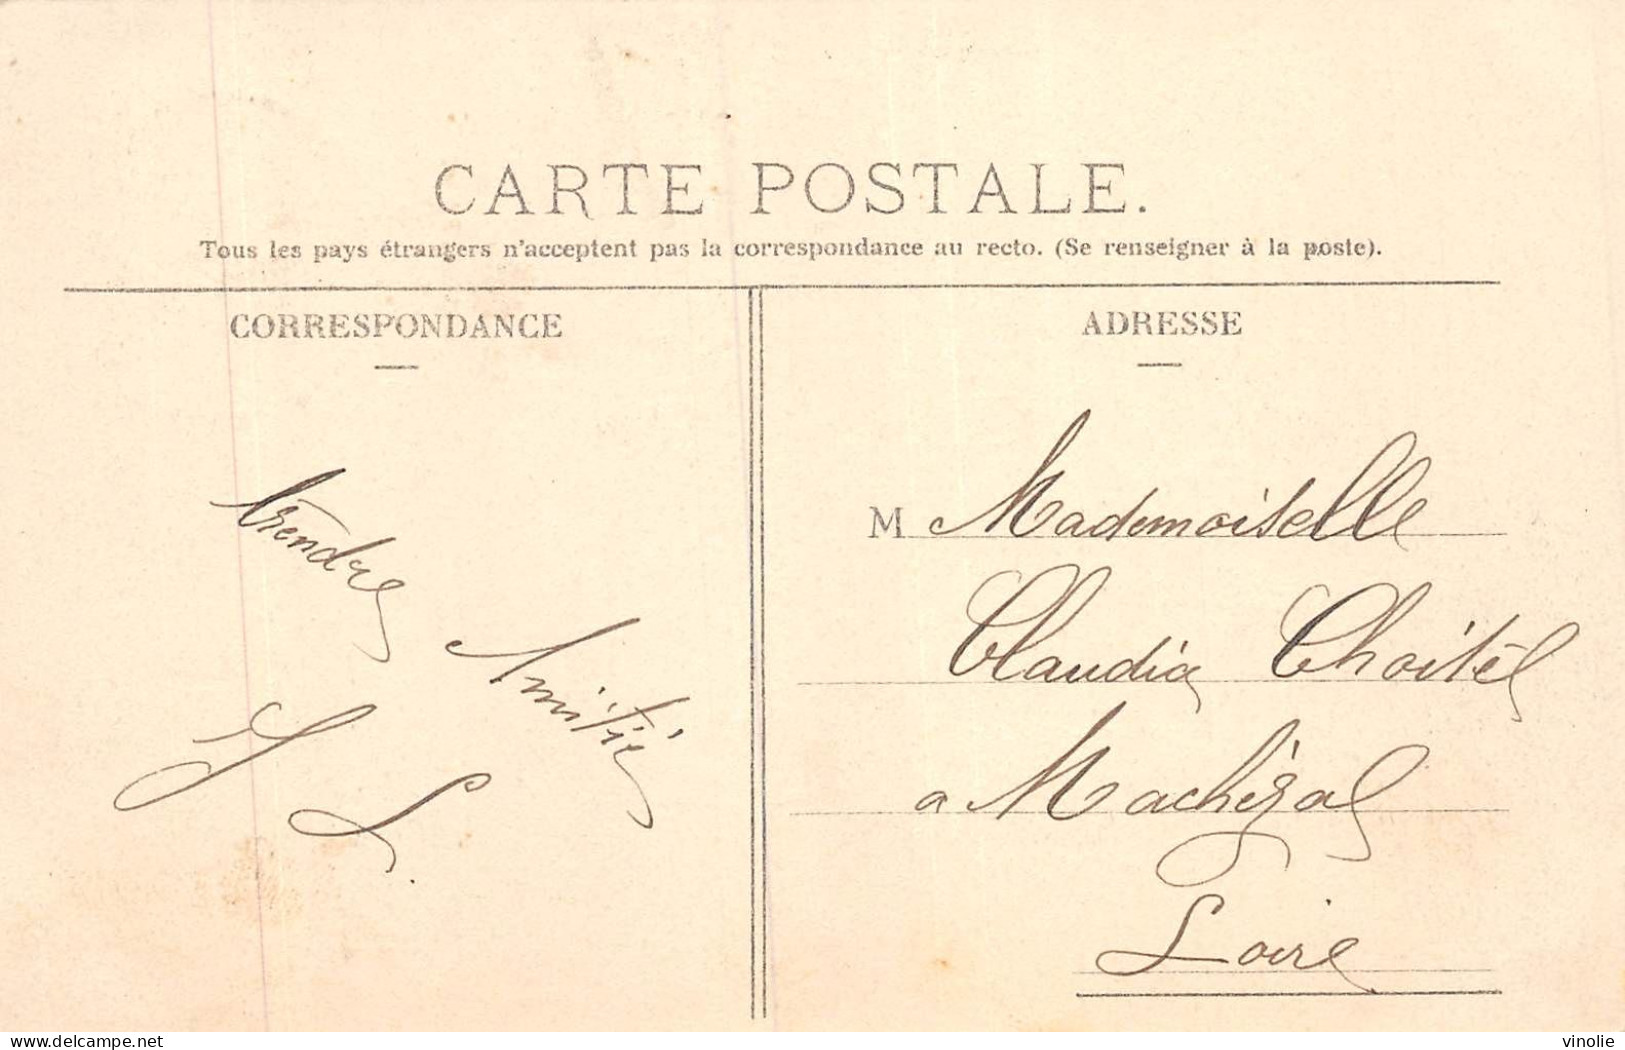 CARTE POSTALE.
Tous les pays étrangers n'acceptent pas la correspondance au recto. (Se renseigner à la poste).
CORRESPONDANCE
tendre
Amitié
L.
ADRESSE
M Mademoiselle
Claudia Choitel
a Machézal
Loire
delcampe.net
vinolie